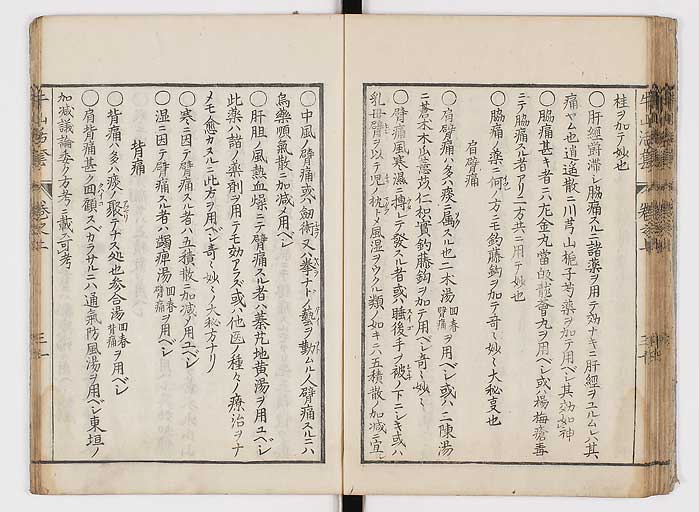 桂ヲ加テ妙也
〇肝經欝滞シ脇痛スルニ諸薬ヲ用テ効ナキニ肝經ヲユルムレハ其
痛ヤム也逍遥散ニ川芎山梔子芍薬ヲ加テ用ベシ其効如神
〇脇痛甚キ者ニハ尤金丸當皈龍會丸ヲ用ベシ或ハ楊梅瘡毒
ニテ脇痛スル者アリ二方共ニ用テ妙也
〇脇痛ノ薬ニ何ノ方ニモ釣藤鈎ヲ加テ奇〻妙〻大秘叓也
肩臂痛
〇肩臂痛ハ多ハ痰ニ属スル也二木湯 四春臂痛 ヲ用ベシ或ハ二陳湯
ニ蒼木木瓜薏苡仁枳實釣藤鈎ヲ加テ用ベシ奇〻妙〻
〇臂痛風寒濕ニ摶レテ發スル者或ハ睡後手ヲ被ノ下ニシキ或ハ
乳母臂ヲ以テ児ノ枕トメ風湿ヲウクル類ノ如キニハ五積散ノ加减ニ宜シ
〇中風ノ臂痛或ハ劔術又ハ拳ナトノ藝ヲ勤ムル人臂痛スルニハ
烏藥順氣散ニ加减メ用ベシ
〇肝胆ノ風熱血燥ニテ臂痛スル者ハ蓁艽地黄湯ヲ用ユベシ
此薬ハ諸ノ薬劑ヲ用テモ効アラズ或ハ他医ノ種〻ノ療治ヲナ
メモ愈カヌルニ此方ヲ用ベシ奇〻妙〻ノ大秘方ナリ
〇寒ニ因テ臂痛スル者ハ五積散ニ加减ノ用ユベシ
〇湿ニ因テ臂痛スル者ハ蠲痺湯 四春臂痛 ヲ用ベシ
背痛
〇背痛ハ多ハ痰ノ聚テナス処也参合湯 四春背痛 ヲ用ベシ
〇肩背痛甚ク囬顧スベカラサルニハ通氣防風湯ヲ用ベシ東垣ノ
加减議論委ク方考ニ載ス可考